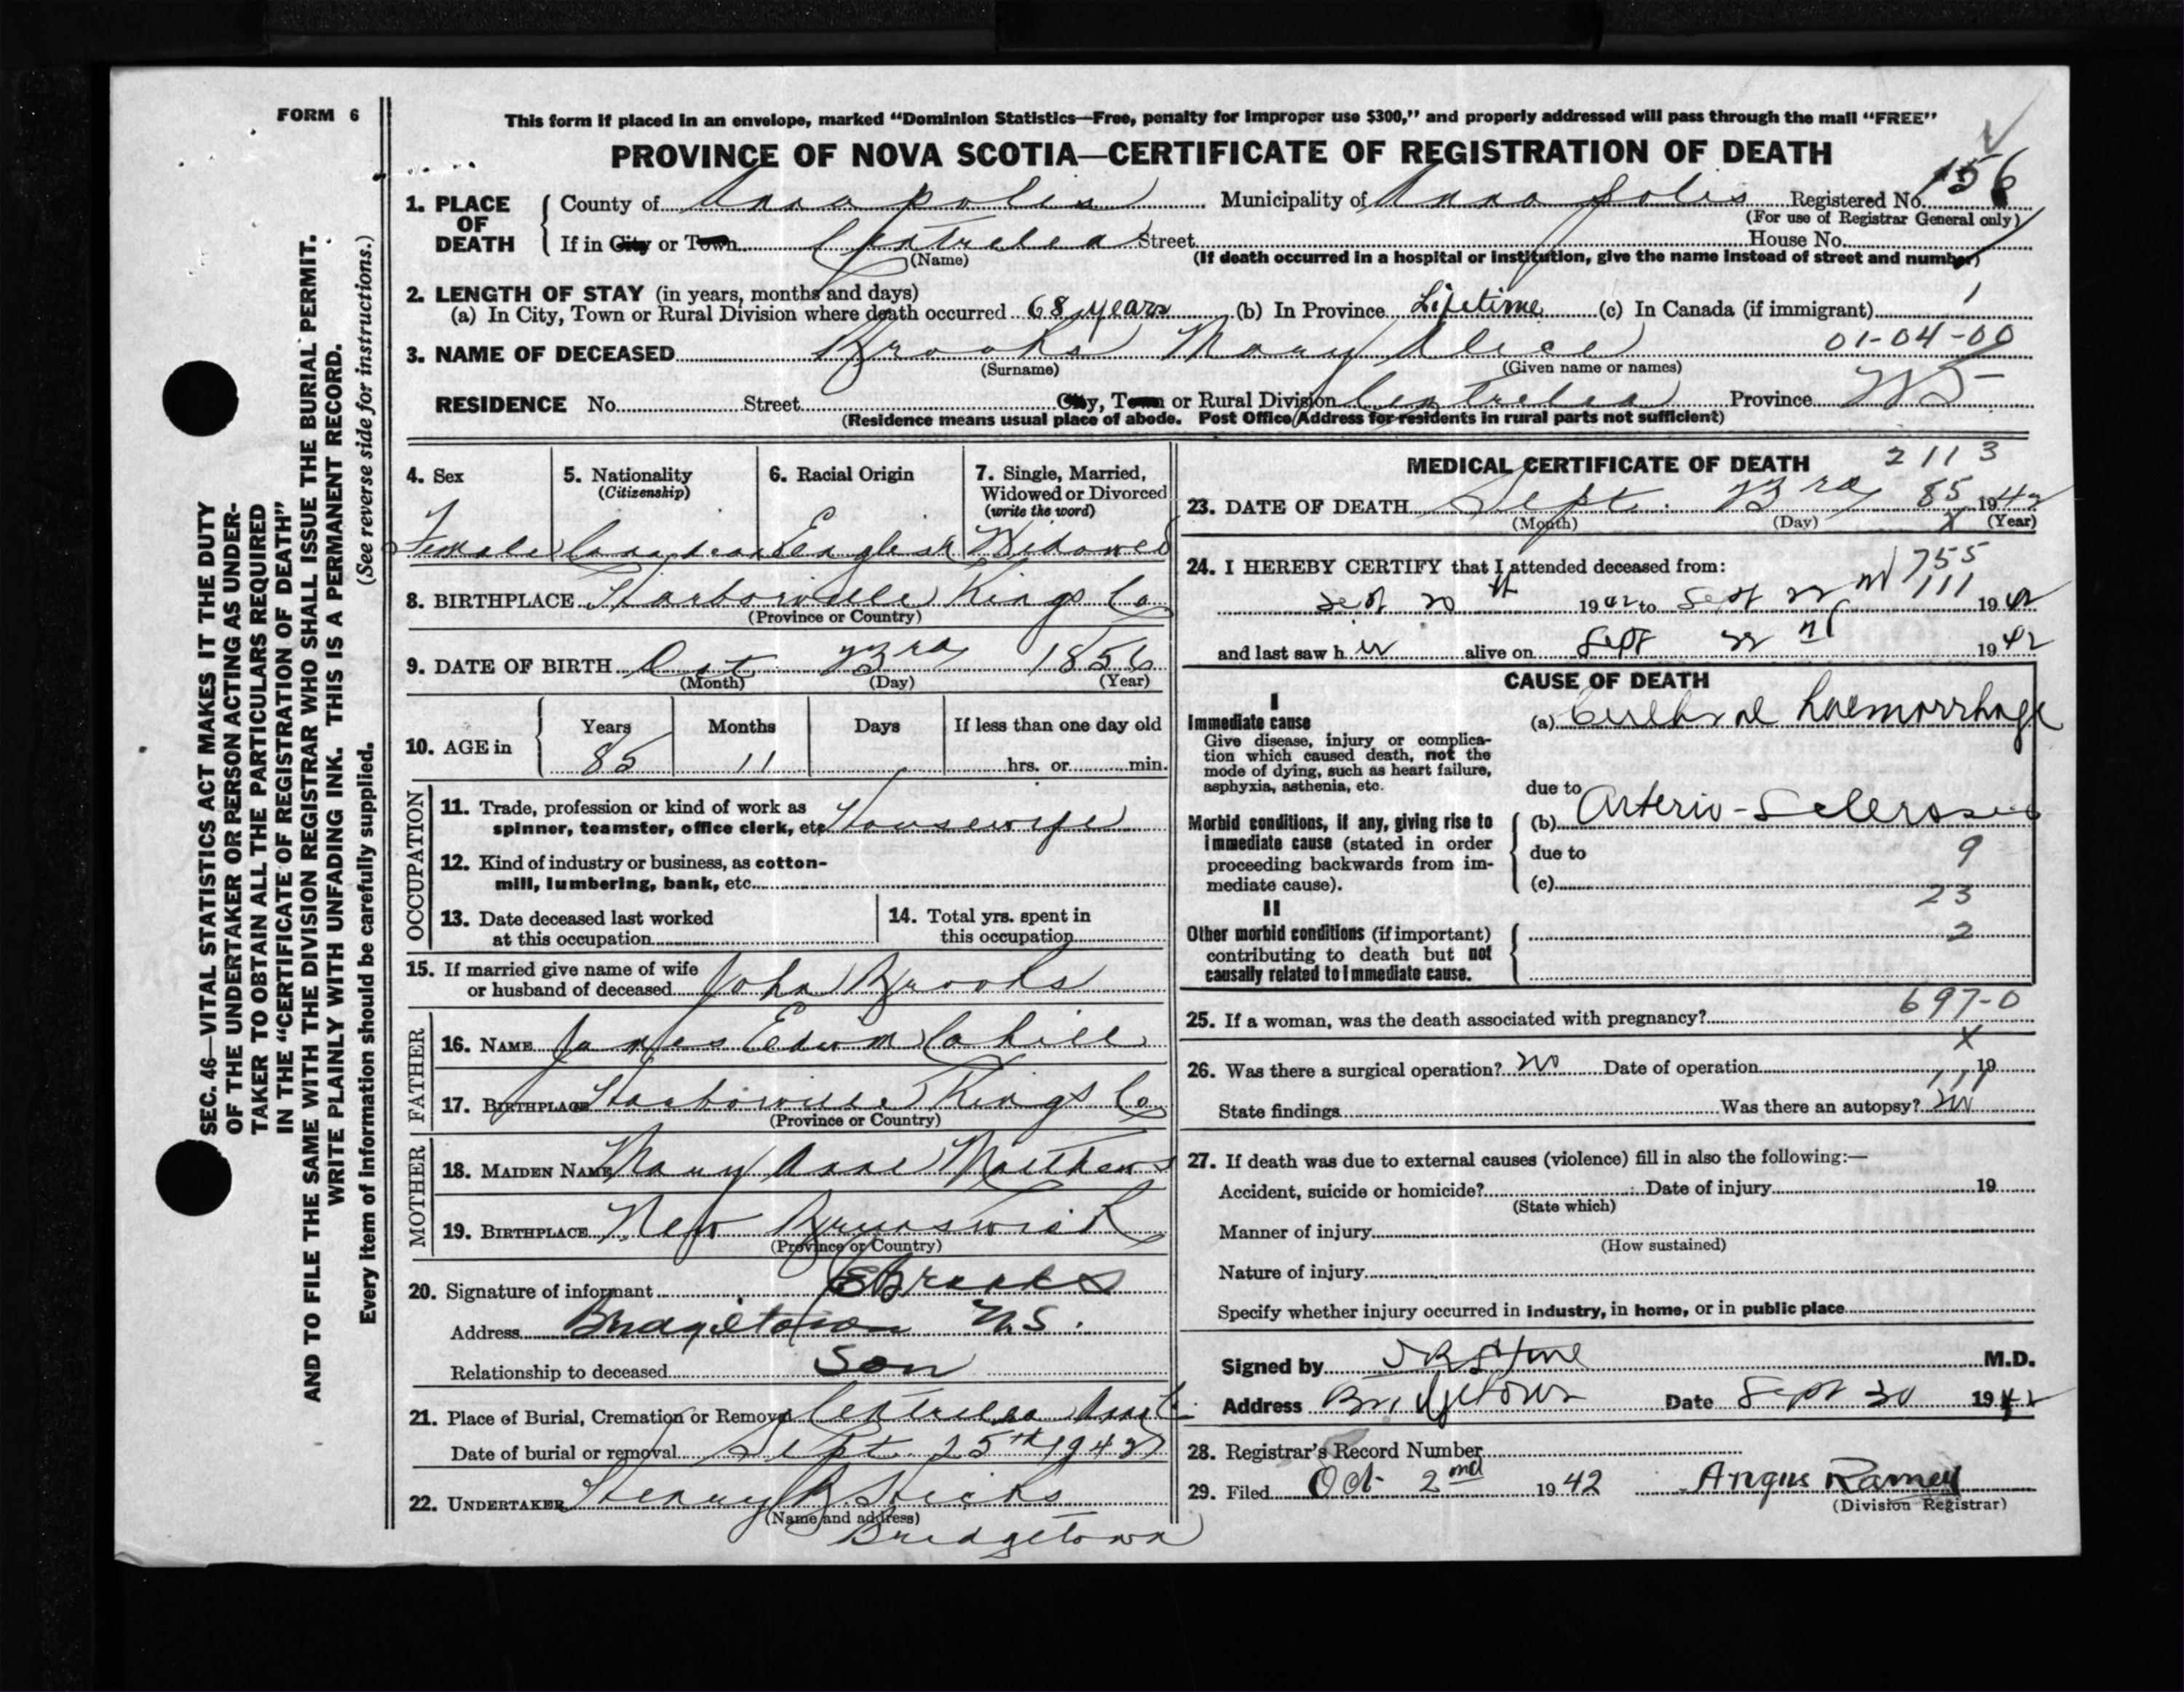 FORM 6
This form if placed in an envelope, marked "Dominion Statistics—Free, penalty for improper use $300," and properly addressed will pass through the mail "FREE"
PROVINCE OF NOVA SCOTIA—CERTIFICATE OF REGISTRATION OF DEATH
156
1. PLACE OF DEATH County of Annapolis Municipality of Annapolis Registered No.
(For use of Registrar General only)
If in City or Town Centrelea Street House No.
(Name) (If death occurred in a hospital or institution, give the name instead of street and number)
2. LENGTH OF STAY (in years, months and days)
(a) In City, Town or Rural Division where death occurred 68 years (b) In Province Lifetime (c) In Canada (if immigrant)
01-04-00
3. NAME OF DECEASED Brooks Mary Alice
(Surname) (Given name or names)
RESIDENCE No. Street City, Town or Rural Division Centrelea Province NS
(Residence means usual place of abode. Post Office Address for residents in rural parts not sufficient)
4. Sex 5. Nationality 6. Racial Origin 7. Single, Married,
(Citizenship) Widowed or Divorced
(write the word)
Female Canadian English Widowed
8. BIRTHPLACE Harborville Kings Co
(Province or Country)
9. DATE OF BIRTH Oct 23rd 1856
(Month) (Day) (Year)
10. AGE in Years Months Days If less than one day old
85 11 hrs. or min.
OCCUPATION
11. Trade, profession or kind of work as
spinner, teamster, office clerk, etc. Housewife
12. Kind of industry or business, as cotton-
mill, lumbering, bank, etc.
13. Date deceased last worked
at this occupation
14. Total yrs. spent in
this occupation
15. If married give name of wife
or husband of deceased John Brooks
FATHER
16. NAME James Edwin Cahill
17. BIRTHPLACE Harborville Kings Co
(Province or Country)
MOTHER
18. MAIDEN NAME Mary Anne Matthews
19. BIRTHPLACE New Brunswick
(Province or Country)
20. Signature of informant E Brooks
Address Bridgetown N.S.
Relationship to deceased Son
21. Place of Burial, Cremation or Removal Centrelea Anna Co.
Date of burial or removal Sept. 25th 1942
22. UNDERTAKER Henry B. Hicks
(Name and address)
Bridgetown
MEDICAL CERTIFICATE OF DEATH
2113
23. DATE OF DEATH Sept. 23rd 85 1942
(Month) (Day) X (Year)
24. I HEREBY CERTIFY that I attended deceased from:
755
111
Sept 20th 1942 to Sept 22nd 1942
and last saw her alive on Sept 22nd 1942
CAUSE OF DEATH
I
Immediate cause
Give disease, injury or complica-
tion which caused death, not the
mode of dying, such as heart failure,
asphyxia, asthenia, etc.
(a) Cerebral haemorrhage
due to
Morbid conditions, if any, giving rise to
immediate cause (stated in order
proceeding backwards from im-
mediate cause).
(b) Arterio-Sclerosis
due to
9
(c)
23
II
Other morbid conditions (if important)
contributing to death but not
causally related to immediate cause.
2
697-0
25. If a woman, was the death associated with pregnancy?
X
26. Was there a surgical operation? no Date of operation 19
111
State findings Was there an autopsy? no
27. If death was due to external causes (violence) fill in also the following:—
Accident, suicide or homicide? Date of injury 19
(State which)
Manner of injury
(How sustained)
Nature of injury
Specify whether injury occurred in industry, in home, or in public place
Signed by M.D.
Address Bridgetown Date Sept 30 1942
28. Registrar's Record Number
29. Filed Oct 2nd 1942 Angus Ramey
(Division Registrar)
SEC. 46—VITAL STATISTICS ACT MAKES IT THE DUTY
OF THE UNDERTAKER OR PERSON ACTING AS UNDER-
TAKER TO OBTAIN ALL THE PARTICULARS REQUIRED
IN THE "CERTIFICATE OF REGISTRATION OF DEATH"
AND TO FILE THE SAME WITH THE DIVISION REGISTRAR WHO SHALL ISSUE THE BURIAL PERMIT.
WRITE PLAINLY WITH UNFADING INK. THIS IS A PERMANENT RECORD.
Every item of information should be carefully supplied. (See reverse side for instructions.)